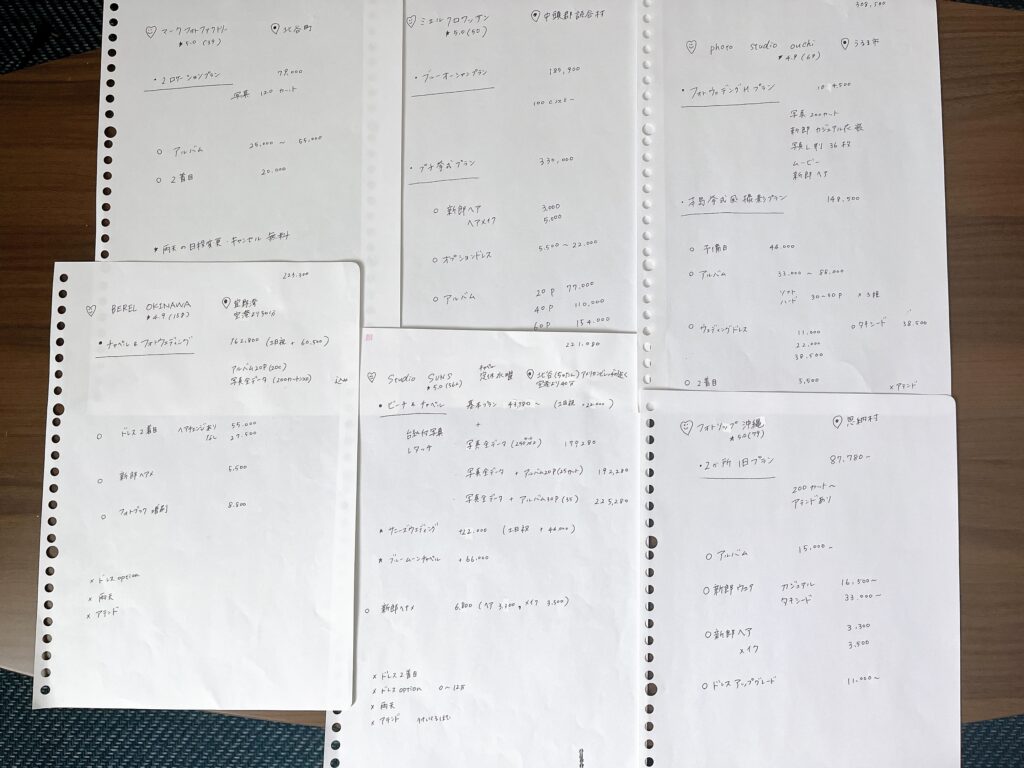 マークフォトファクトリー
北谷町
★5.0 (39)
・2ロケーションプラン
写真 120カット
○ アルバム 25,000 ～ 55,000
○ 2着目 20,000
★ 雨天の日程変更・キャンセル 無料
ミエルクロワッサン
中頭郡読谷村
★5.0 (50)
・ブルーオーシャンプラン 189,900
100カット～
・プチ挙式プラン 330,000
○ 新郎ヘア 3,000
ヘアメイク 5,000
○ オプションドレス 5,500 ～ 22,000
○ アルバム 20P 77,000
40P 110,000
60P 154,000
308,500
photo studio ouchi
うるま市
★4.9 (69)
・フォトウェディングMプラン
写真200カット
新郎 カジュアル衣装
ムービー
新郎ヘア
撮影プラン 148,500
○ 予備日 44,000
○ アルバム 33,000 ～ 88,000
ソフト
ハード 30-50P × 3種
○ ウェディングドレス 11,000
22,000
38,500
○ タキシード 38,500
○ 2着目 5,500
× アテンド
223,300
BEREL OKINAWA
宜野湾
★4.9 (158)
空港より30分
・チャペル&フォトウェディング 162,800 (土日祝 + 60,500)
アルバム20P (200)
写真全データ
○ ドレス2着目 ヘアチェンジあり 55,000
なし 27,500
○ 新郎ヘアメ 5,500
○ フォトブック増刷 8,800
× ドレスoption
× 雨天
× アテンド
221,080
Studio SUNS
定休水曜
★5.0 (362)
空港より40分
・ビーチ&チャペル 基本プラン (土日祝 +22,000)
+
台紙付写真
レタッチ
・写真全データ
・写真全データ + アルバム20P (25カット) 192,280
・写真全データ + アルバム30P (35) 225,280
★ サニーズウェディング +22,000 (土日祝 + 44,000)
★ ブルームーンチャペル +66,000
○ 新郎ヘアメ 6,800 (ヘア 3,300, メイク 3,500)
× ドレス2着目
× ドレスoption
× 雨天
× アテンド
フォトリップ沖縄
恩納村
★5.0 (79)
・2か所1日プラン 87,780～
200カット～
アテンドあり
○ アルバム 15,000～
○ 新郎ウェア カジュアル 16,500～
タキシード 33,000～
○ 新郎ヘア 3,300
メイク 3,500
○ ドレスアップグレード 11,000～